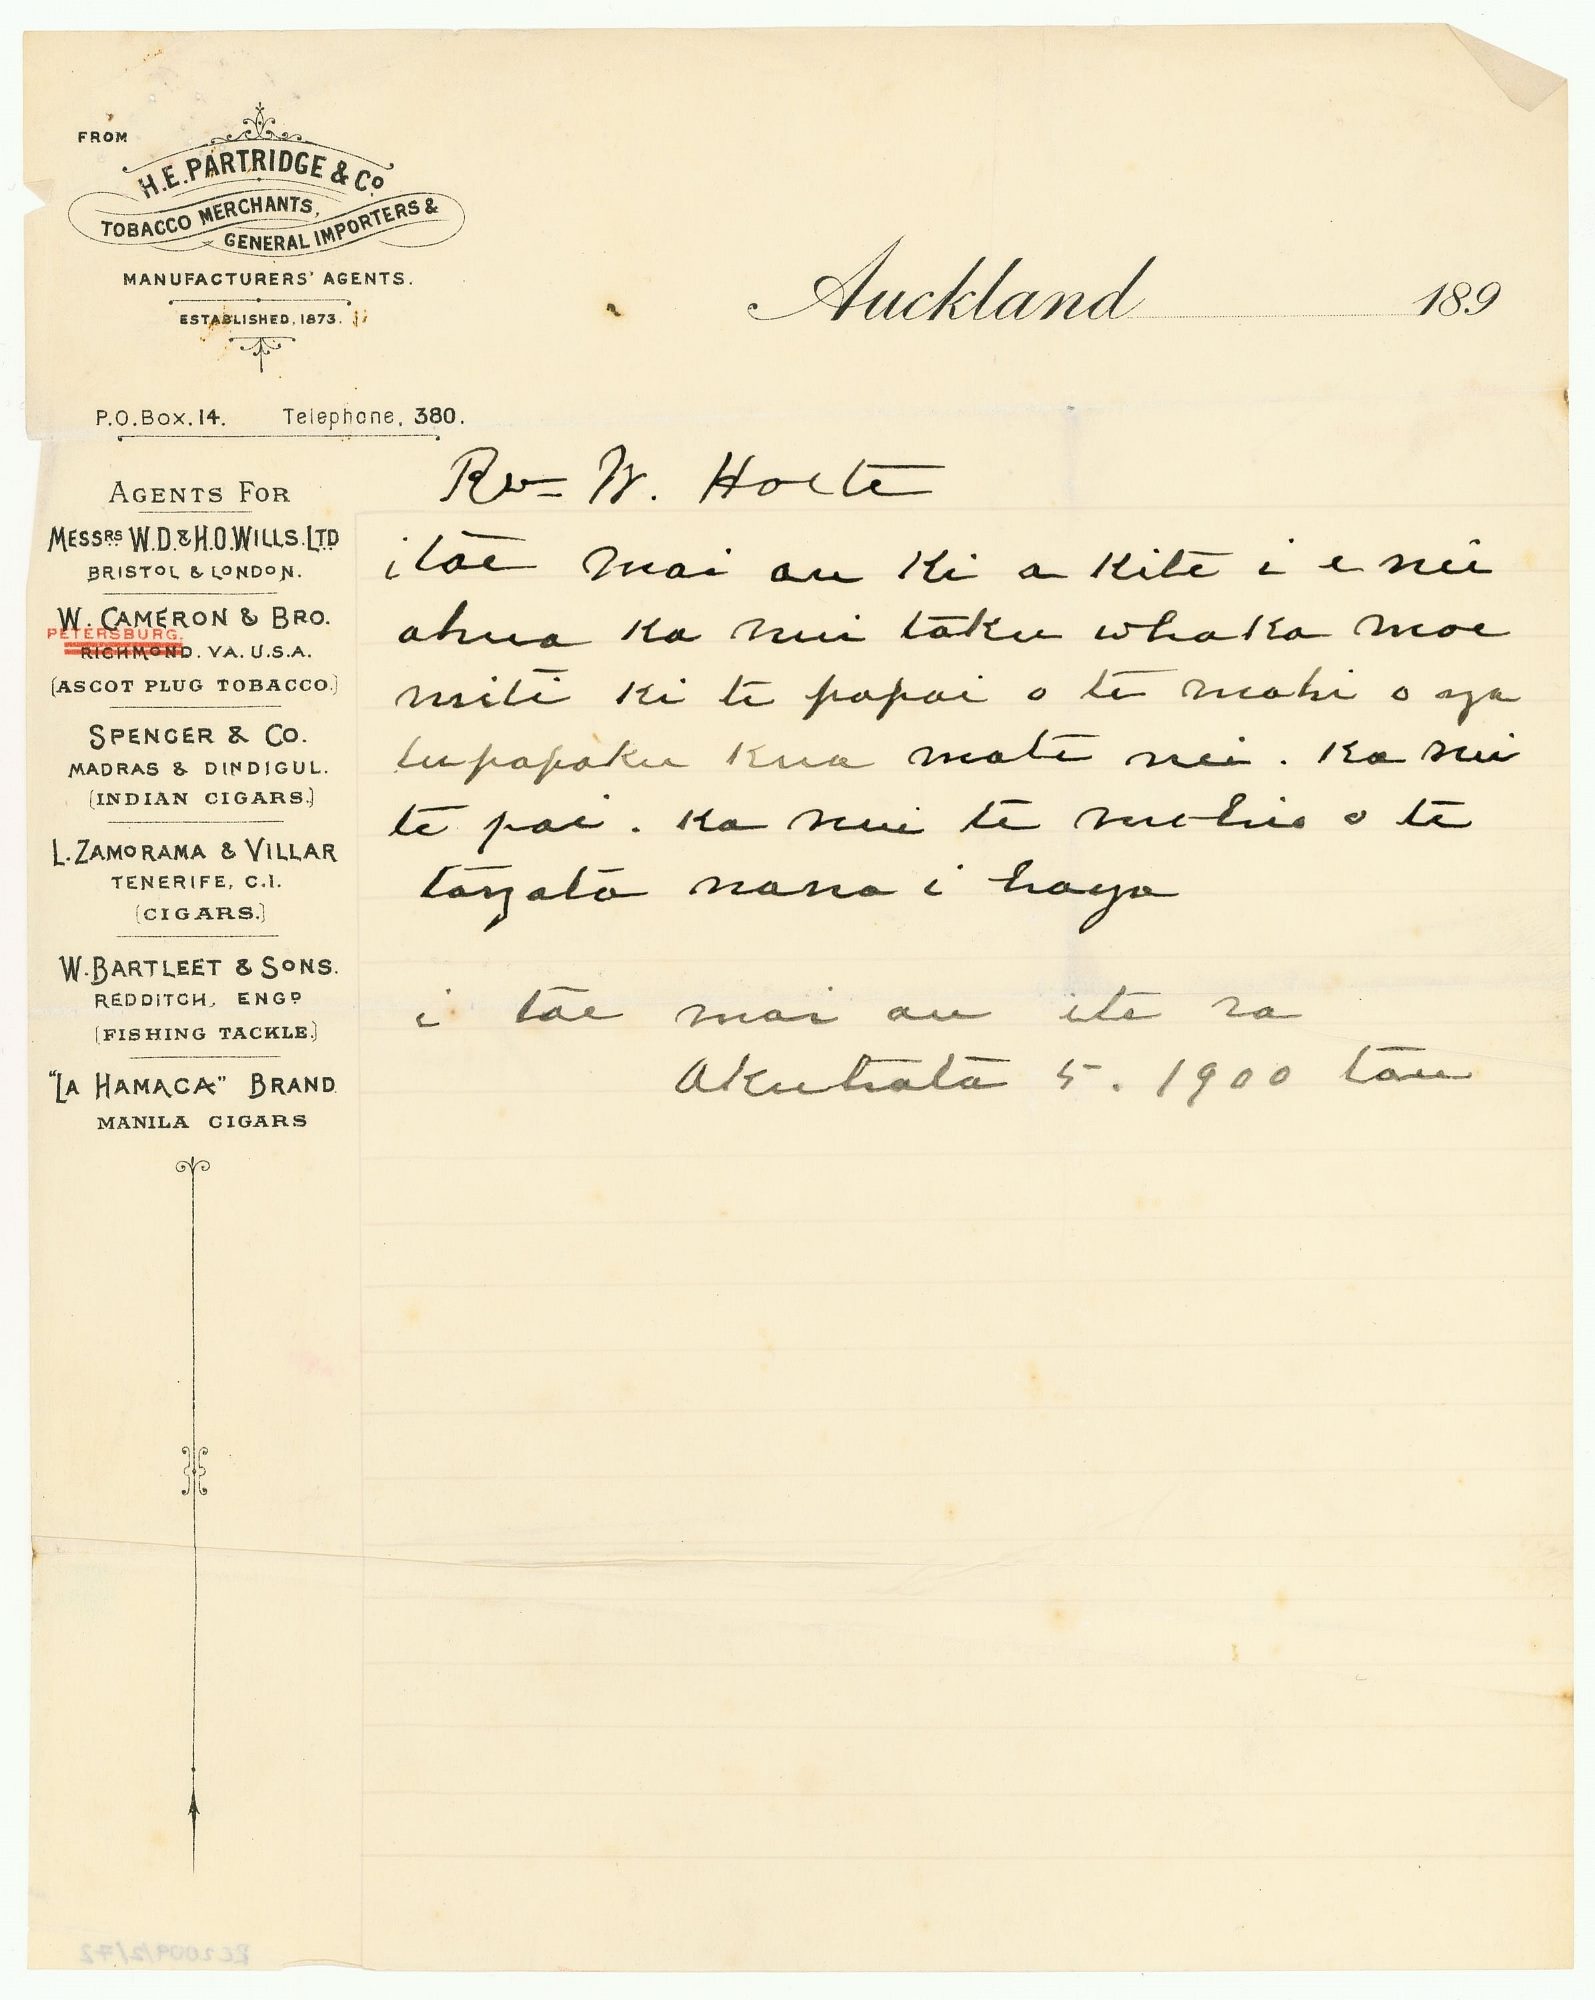 FROM
H.E. PARTRIDGE & Co
TOBACCO MERCHANTS,
GENERAL IMPORTERS &
MANUFACTURERS' AGENTS.
ESTABLISHED, 1873.
Auckland 189
P.O. Box. 14. Telephone, 380.
AGENTS FOR
MESSRS W.D. & H.O. WILLS. LTD
BRISTOL & LONDON.
W. CAMERON & BRO.
PETERSBURG.
RICHMOND. VA. U.S.A.
(ASCOT PLUG TOBACCO.)
SPENCER & CO.
MADRAS & DINDIGUL.
(INDIAN CIGARS.)
L. ZAMORAMA & VILLAR
TENERIFE, C.I.
(CIGARS.)
W. BARTLEET & SONS.
REDDITCH, ENGD
(FISHING TACKLE.)
"LA HAMACA" BRAND
MANILA CIGARS
Rev= W. Hoete
i tae mai au ki a kite i e nei
ahua ka nui taku whaka moe
miti ki te papai o te mahi o ga
tupapaku kua mate nei. ka nui
te pai. ka nui te mohio o te
tangata nana i haga
i tae mai au ite ra
Akuhata 5. 1900 tau
RC2009/2/72